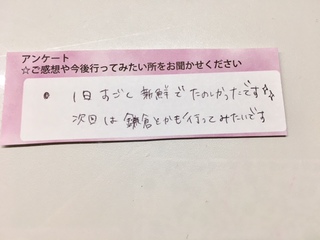 アンケート
☆ご感想や今後行ってみたい所をお聞かせください
1日 すごく 新鮮で たのしかったです
次回は 鎌倉とかも行ってみたいです